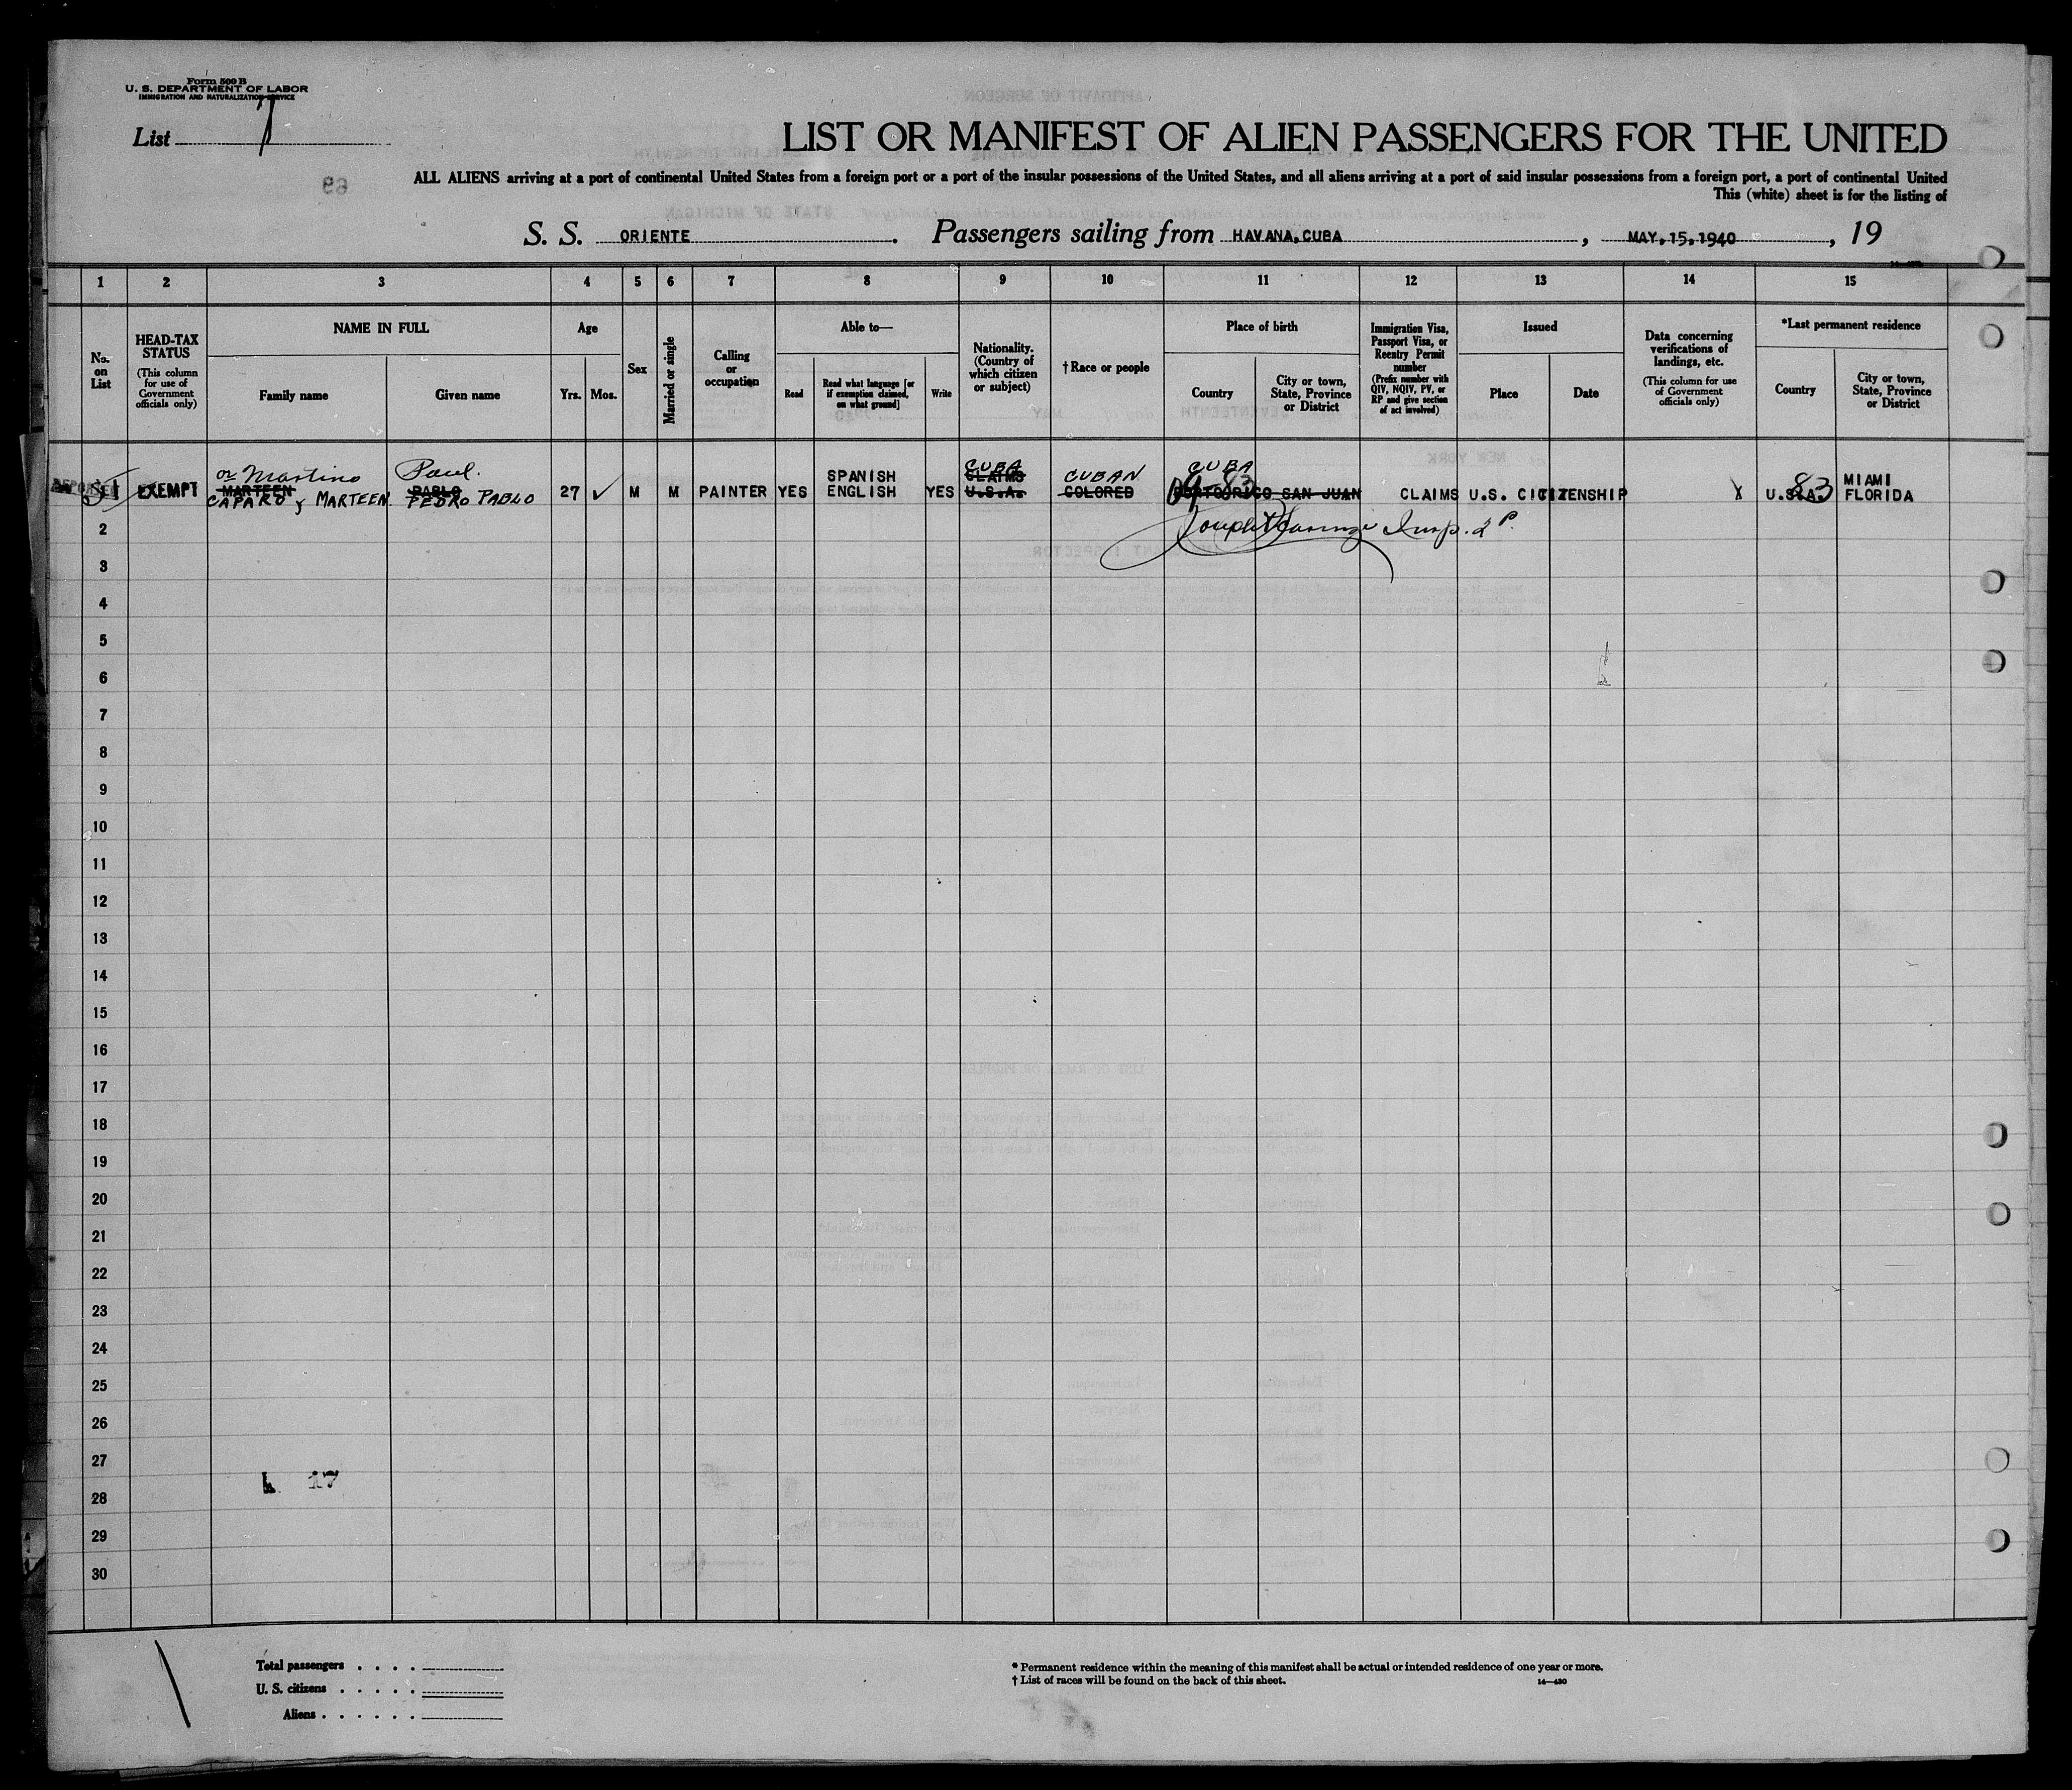 Form 500 B
U. S. DEPARTMENT OF LABOR
IMMIGRATION AND NATURALIZATION SERVICE
List 7
LIST OR MANIFEST OF ALIEN PASSENGERS FOR THE UNITED
ALL ALIENS arriving at a port of continental United States from a foreign port or a port of the insular possessions of the United States, and all aliens arriving at a port of said insular possessions from a foreign port, a port of continental United
This (white) sheet is for the listing of
S. S. ORIENTE. Passengers sailing from HAVANA, CUBA, MAY, 15, 1940, 19
1 2 3 4 5 6 7 8 9 10 11 12 13 14 15
No. on List
HEAD-TAX STATUS
(This column for use of Government officials only)
NAME IN FULL
Family name
Given name
Age
Yrs.
Mos.
Sex
Married or single
Calling or occupation
Able to—
Read
Read what language [or if exemption claimed, on what ground]
Write
Nationality. (Country of which citizen or subject)
† Race or people
Place of birth
Country
City or town, State, Province or District
Immigration Visa, Passport Visa, or Reentry Permit number
(Prefix number with QIV, NQIV, PV, or RP and give section of act involved)
Issued
Place
Date
Data concerning verifications of landings, etc.
(This column for use of Government officials only)
*Last permanent residence
Country
City or town, State, Province or District
or Martino Paul. CUBA CUBA
SPANISH CLAIMS CUBAN 83 MIAMI
1 EXEMPT MARTEEN PABLO 27 ✓ M M PAINTER YES ENGLISH YES U.S.A. COLORED PORTO RICO SAN JUAN CLAIMS U.S. CITIZENSHIP X U.S.A. 83 FLORIDA
CAPARO y MARTEEN PEDRO PABLO
2 Insp.
3
4
5
6
7
8
9
10
11
12
13
14
15
16
17
18
19
20
21
22
23
24
25
26
27
17
28
29
30
Total passengers . . . .
U. S. citizens . . . . .
Aliens . . . . . .
* Permanent residence within the meaning of this manifest shall be actual or intended residence of one year or more.
† List of races will be found on the back of this sheet.
14—430